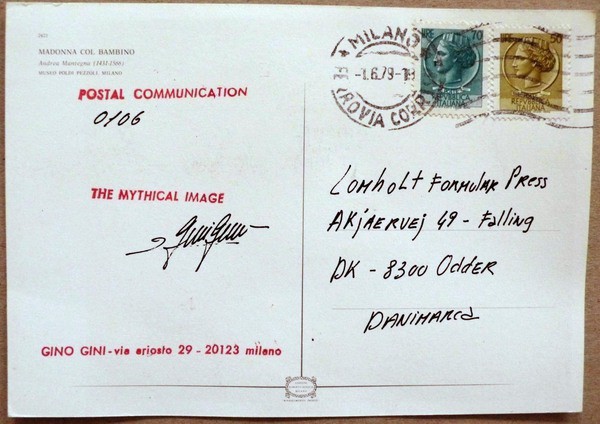 2653
MADONNA COL BAMBINO
Andrea Mantegna (1431-1506)
MUSEO POLDI PEZZOLI, MILANO
POSTAL COMMUNICATION
0106
THE MYTHICAL IMAGE
Gini Gino
GINO GINI - via ariosto 29 - 20123 milano
MILANO
-1.6.79-18
FERROVIA CORR
LIRE 70
REPUBBLICA
ITALIANA
REPUBBLICA
ITALIANA
Lomholt Formular Press
AKjaervej 49 - Falling
DK - 8300 Odder
DANIMARCA